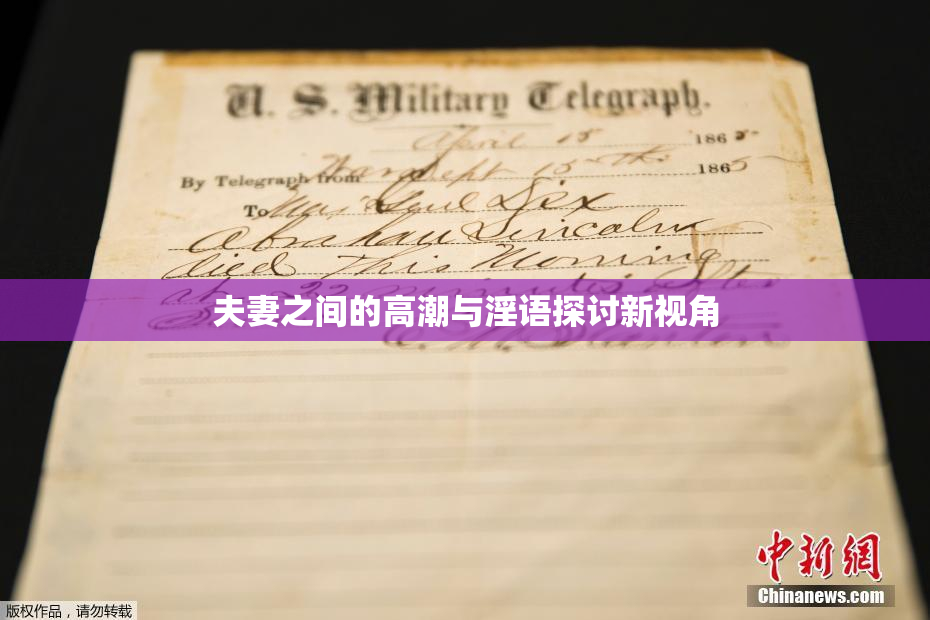 U. S. Military Telegraph.
April 15 1865
By Telegraph from War Dept 15th 1865
To Maj Genl Dix
Abraham Lincoln
died This Morning
at 22 minutes after
夫妻之间的高潮与淫语探讨新视角
E. M. Stanton
中新网
Chinanews.com
版权作品,请勿转载